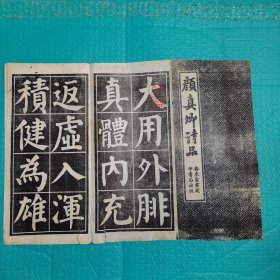 顏真卿詩品
大用外腓
真體內充
返虛入渾
積健為雄